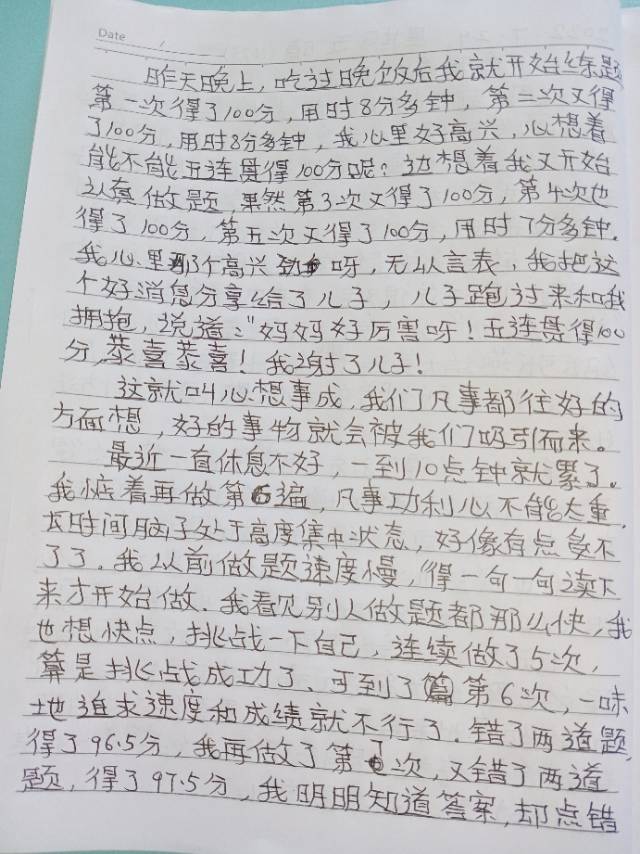 Date
昨天晚上，吃过晚饭后我就开始练题
第一次得了100分，用时8分多钟，第二次又得
了100分，用时8分多钟，我心里好高兴，心想着
能不能五连贯得100分呢？边想着我又开始
认真做题，果然第3次又得了100分，第4次也
得了100分，第五次又得了100分，用时7分多钟.
我心里那个高兴劲呀，无以言表，我把这
个好消息分享给了儿子，儿子跑过来和我
拥抱，说道："妈妈好厉害呀！五连贯得100
分，恭喜恭喜！我谢了儿子！
这就叫心想事成，我们凡事都往好的
方面想，好的事物就会被我们吸引而来。
最近一直休息不好，一到10点钟就累了。
我惦着再做第6遍，凡事功利心不能太重，
长时间脑子处于高度集中状态，好像有点受不
了了．我以前做题速度慢，得一句一句读下
来才开始做．我看见别人做题都那么快，我
也想快点，挑战一下自己，连续做了5次，
算是挑战成功了、可到了第6次，一味
地追求速度和成绩就不行了．错了两道题，
得了96.5分，我再做了第7次，又错了两道
题，得了97.5分，我明明知道答案，却点错